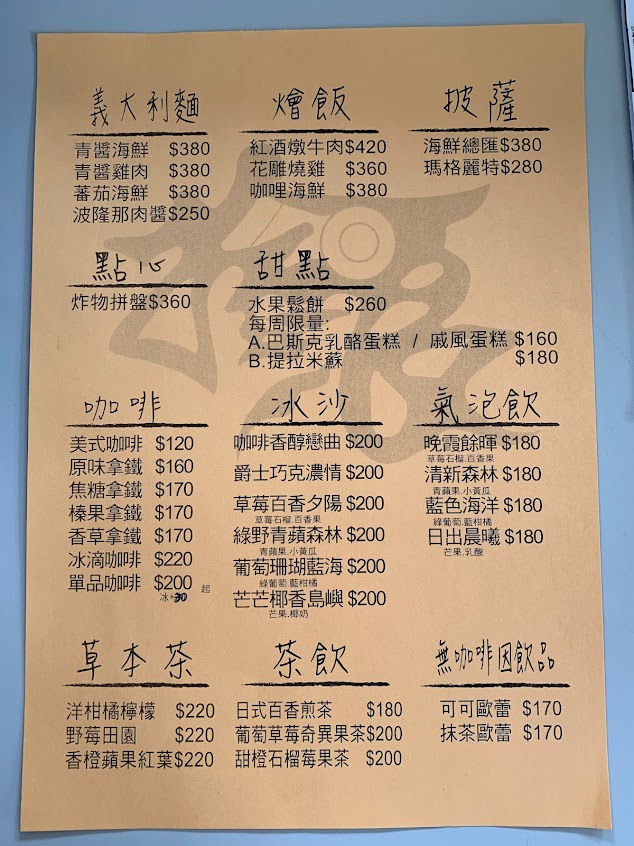 義大利麵
青醬海鮮 $380
青醬雞肉 $380
蕃茄海鮮 $380
波隆那肉醬$250
燴飯
紅酒燉牛肉$420
花雕燒雞 $360
咖哩海鮮 $380
披薩
海鮮總匯$380
瑪格麗特$280
點心
炸物拼盤$360
甜點
水果鬆餅 $260
每周限量:
A.巴斯克乳酪蛋糕 / 戚風蛋糕 $160
B.提拉米蘇 $180
咖啡
美式咖啡 $120
原味拿鐵 $160
焦糖拿鐵 $170
榛果拿鐵 $170
香草拿鐵 $170
冰滴咖啡 $220
單品咖啡 $200 起
冰+30
冰沙
咖啡香醇戀曲 $200
爵士巧克濃情 $200
草莓百香夕陽 $200
草莓石榴.百香果
綠野青蘋森林 $200
青蘋果.小黃瓜
葡萄珊瑚藍海 $200
綠葡萄.藍柑橘
芒芒椰香島嶼 $200
芒果.椰奶
氣泡飲
晚霞餘暉 $180
草莓石榴.百香果
清新森林 $180
青蘋果.小黃瓜
藍色海洋 $180
綠葡萄.藍柑橘
日出晨曦 $180
芒果.乳酸
草本茶
洋柑橘檸檬 $220
野莓田園 $220
香橙蘋果紅葉$220
茶飲
日式百香煎茶 $180
葡萄草莓奇異果茶$200
甜橙石榴莓果茶 $200
無咖啡因飲品
可可歐蕾 $170
抹茶歐蕾 $170